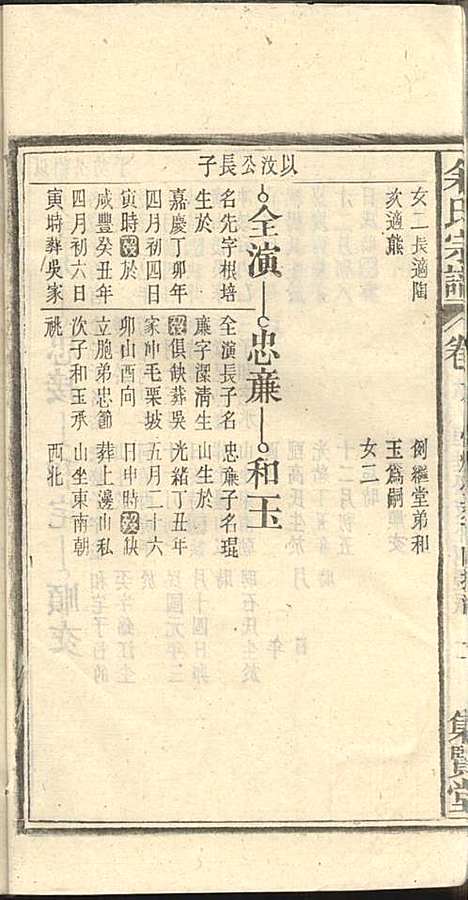 余氏宗譜
卷
集賢堂
女二長適陶
次適熊
例繼堂弟和
玉爲嗣
女三
以汝公長子
全演
忠亷
和玉
名先字根培
生於
嘉慶丁卯年
四月初四日
寅時歿於
咸豐癸丑年
四月初六日
寅時葬吳家
全演長子名
亷字潔清生
歿俱缺葬吳
家冲毛栗坡
卯山酉向
立胞弟忠節
次子和玉承
祧
忠亷子名琨
山生於
光緒丁丑年
五月二十六
日申時歿缺
葬上邊山私
山坐東南朝
西北